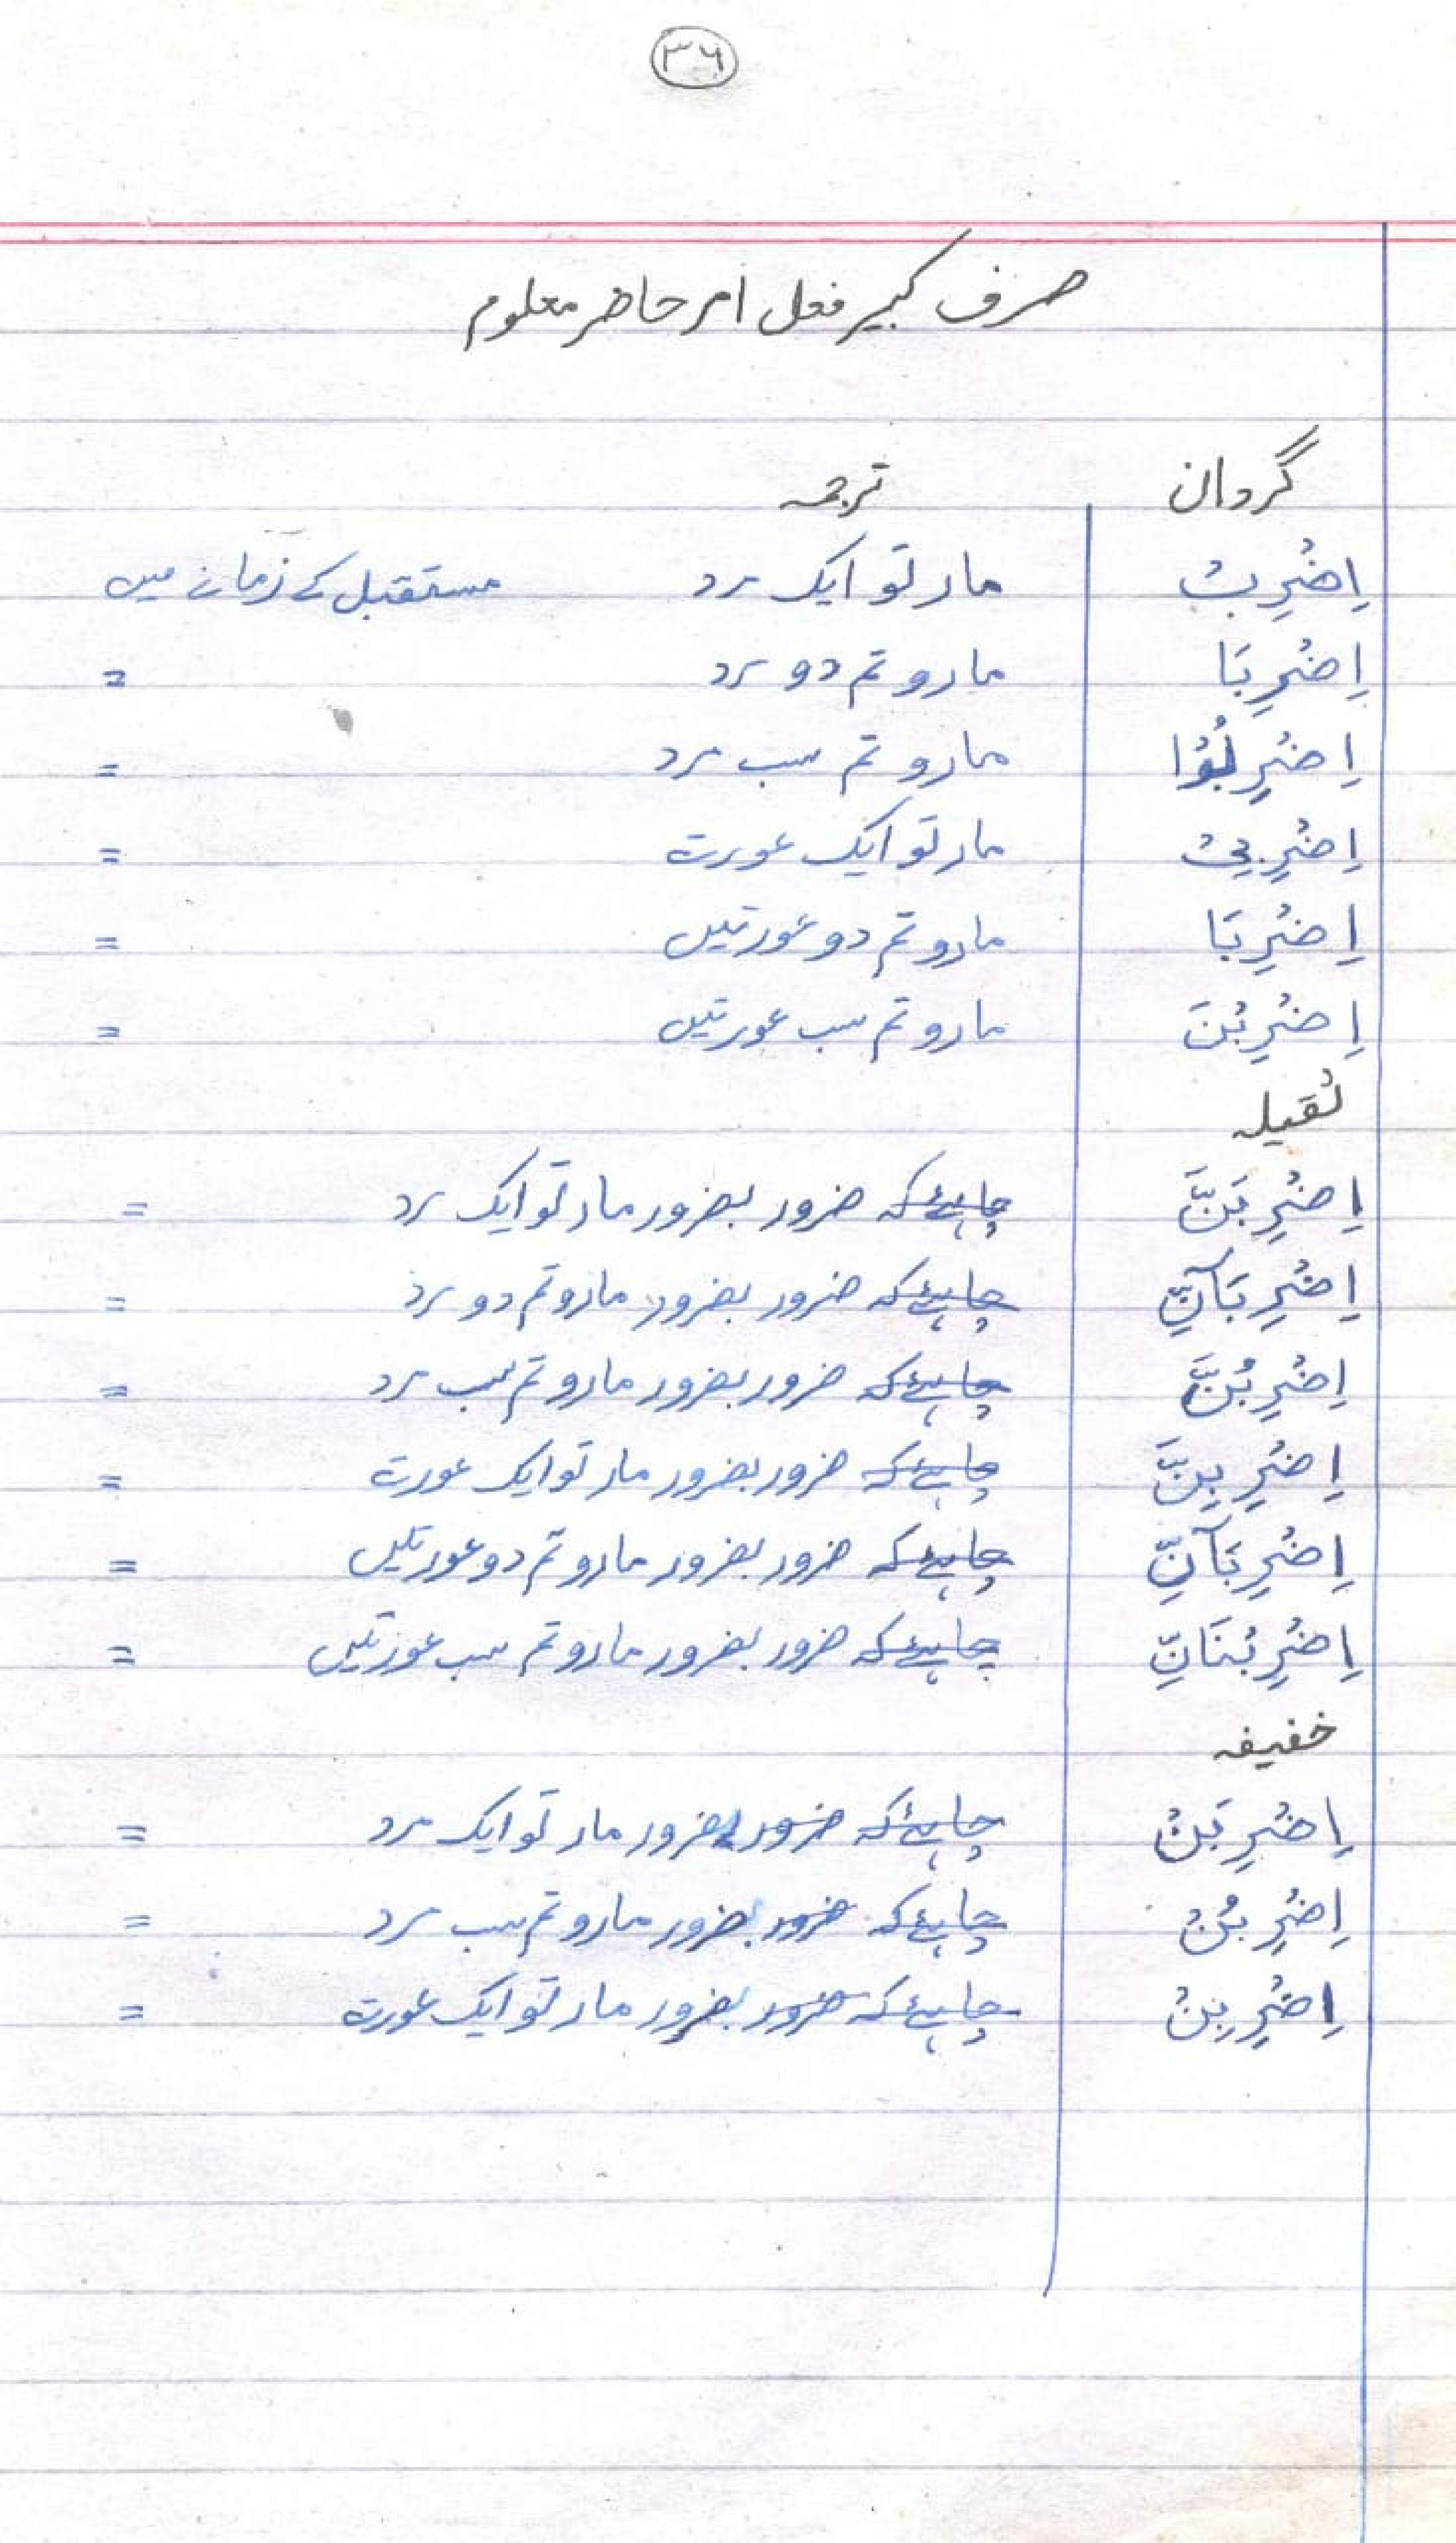 ۳۶
صرف کبیر فعل امر حاضر معلوم
گردان ترجمہ
اِضْرِبْ مار تو ایک مرد مستقبل کے زمانے میں
اِضْرِبَا مارو تم دو مرد =
اِضْرِبُوْا مارو تم سب مرد =
اِضْرِبِيْ مار تو ایک عورت =
اِضْرِبَا مارو تم دو عورتیں =
اِضْرِبْنَ مارو تم سب عورتیں =
ثقیلہ
اِضْرِبَنَّ چاہئے کہ ضرور بضرور مار تو ایک مرد =
اِضْرِبَآنِّ چاہئے کہ ضرور بضرور مارو تم دو مرد =
اِضْرِبُنَّ چاہئے کہ ضرور بضرور مارو تم سب مرد =
اِضْرِبِنَّ چاہئے کہ ضرور بضرور مار تو ایک عورت =
اِضْرِبَآنِّ چاہئے کہ ضرور بضرور مارو تم دو عورتیں =
اِضْرِبْنَانِّ چاہئے کہ ضرور بضرور مارو تم سب عورتیں =
خفیفہ
اِضْرِبَنْ چاہئے کہ ضرور بضرور مار تو ایک مرد =
اِضْرِبُنْ چاہئے کہ ضرور بضرور مارو تم سب مرد =
اِضْرِبِنْ چاہئے کہ ضرور بضرور مار تو ایک عورت =